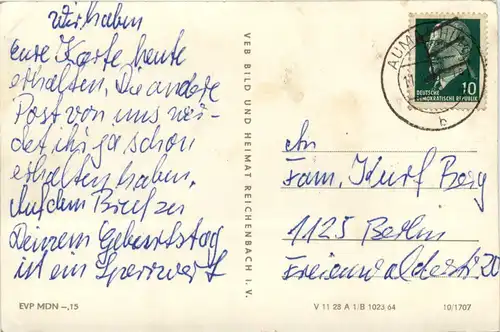 Wir haben
Eure Karte heute
erhalten. Die andere
Post von uns wer-
det ihr ja schon
erhalten haben.
Auf dem Brief zu
Deinem Geburtstag
ist ein Sperrwert
VEB BILD UND HEIMAT REICHENBACH I. V.
AUMA
b
10
DEUTSCHE
DEMOKRATISCHE REPUBLIK
An
Fam. Kurt Berg
1125 Berlin
Freienwalderstr. 20
EVP MDN –,15
V 11 28 A 1/B 1023 64
10/1707